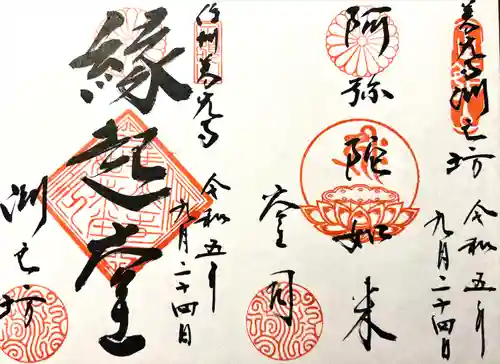 善光寺渕之坊
令和五年
九月二十四日
阿弥陀如来
信州善光寺
令和五年
九月二十四日
縁起堂
渕之坊